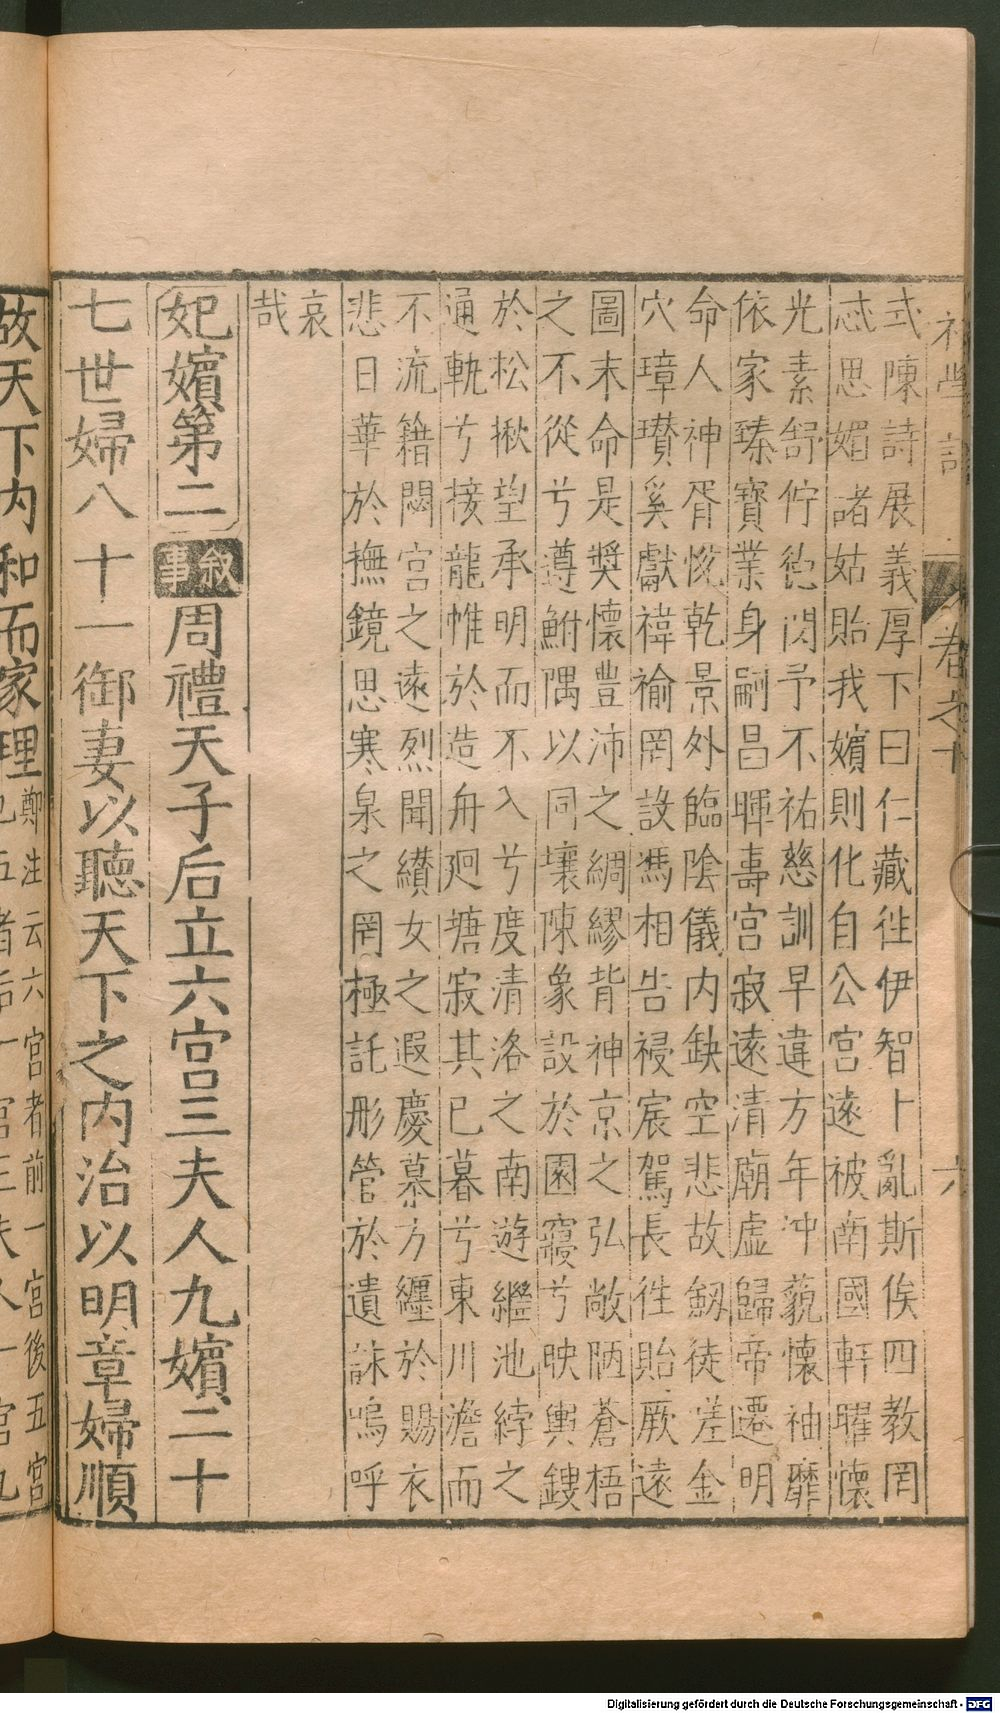 初學記
卷之十
六
式陳詩展義厚下曰仁藏往伊智卜亂斯俟四教罔
忒思媚諸姑貽我嬪則化自公宮遠被南國軒曜懷
光素舒佇德閔予不祐慈訓早違方年冲藐懷袖靡
依家臻寶業身嗣昌暉壽宮寂遠清廟虛歸帝遷明
命人神胥悅乾景外臨陰儀内缺空悲故劒徒嗟金
穴璋瓚奚獻褘褕罔設馮相告祲宸駕長往貽厥遠
圖末命是奬懷豐沛之綢繆背神京之弘敞陋蒼梧
之不從兮遵鮒隅以同壤陳象設於園寢兮映輿鍐
於松揪望承明而不入兮度清洛之南遊繼池綍之
通軌兮接龍帷於造舟廻塘寂其已暮兮東川澹而
不流籍閟宮之遠烈聞纘女之遐慶慕方纏於賜衣
悲日華於撫鏡思寒泉之罔極託彤管於遺誄嗚呼
哀
哉
妃嬪第二 敘事 周禮天子后立六宮三夫人九嬪二十
七世婦八十一御妻以聽天下之内治以明章婦順
故天下内和而家理
鄭注云六宮者前一宮後五宮
也五者后一宮三夫人一宮九
Digitalisierung gefördert durch die Deutsche Forschungsgemeinschaft - DFG